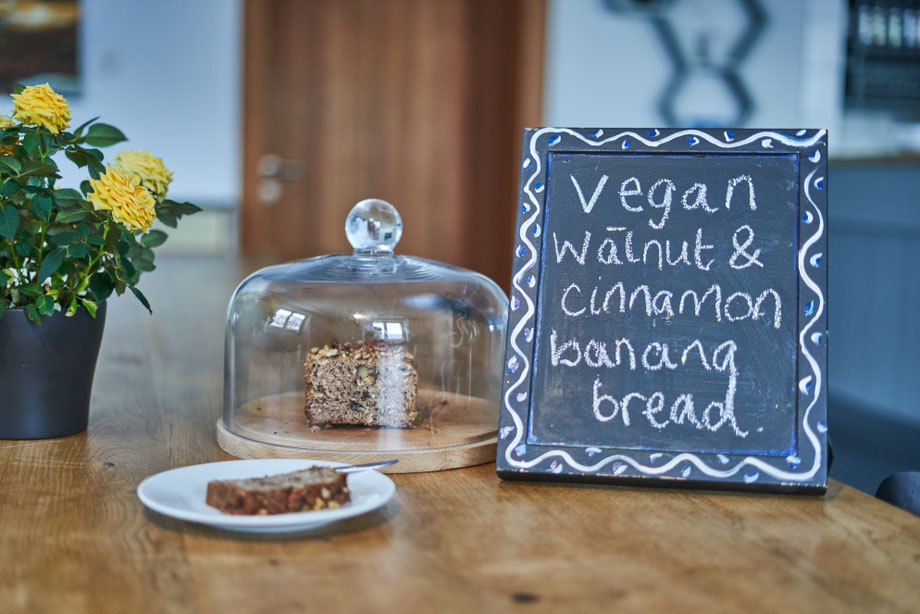 Vegan
Walnut &
cinnamon
banana
bread.